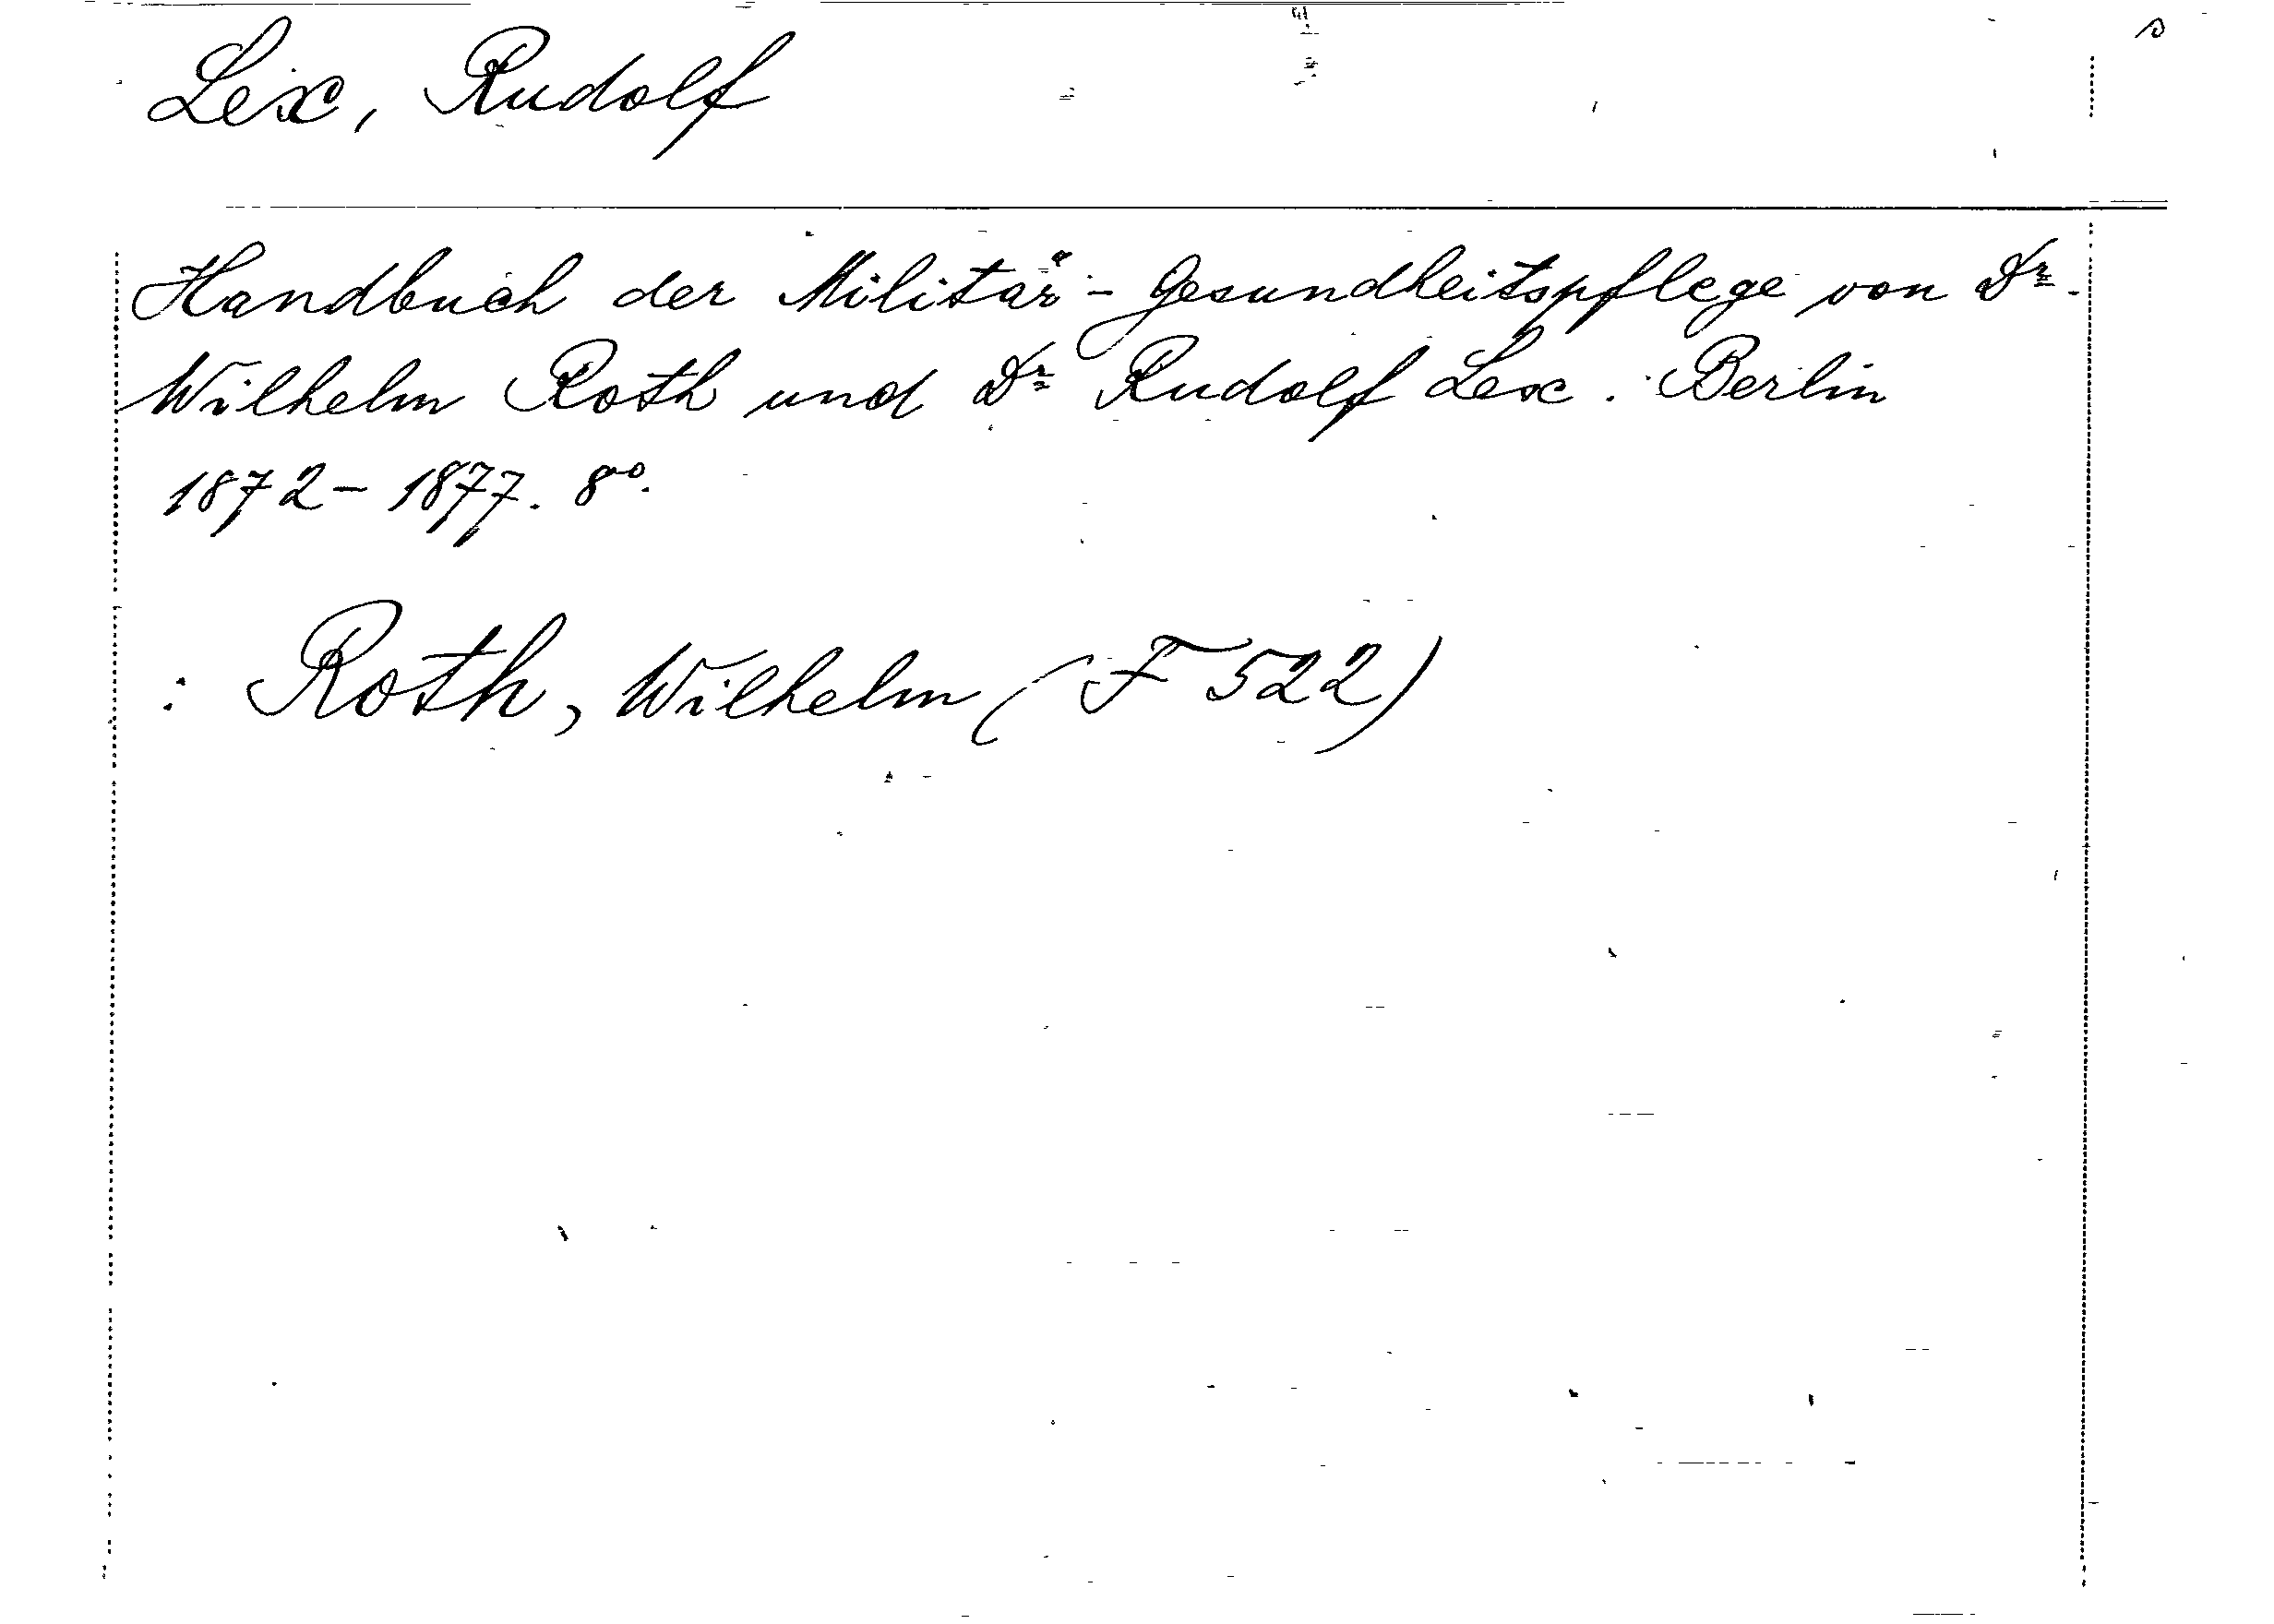 Lex, Rudolf
Handbuch der Militär-Gesundheitspflege von Dr.
Wilhelm Roth und Dr Rudolf Lex. Berlin
1872-1877. 8°.
: Roth, Wilhelm (F 522)